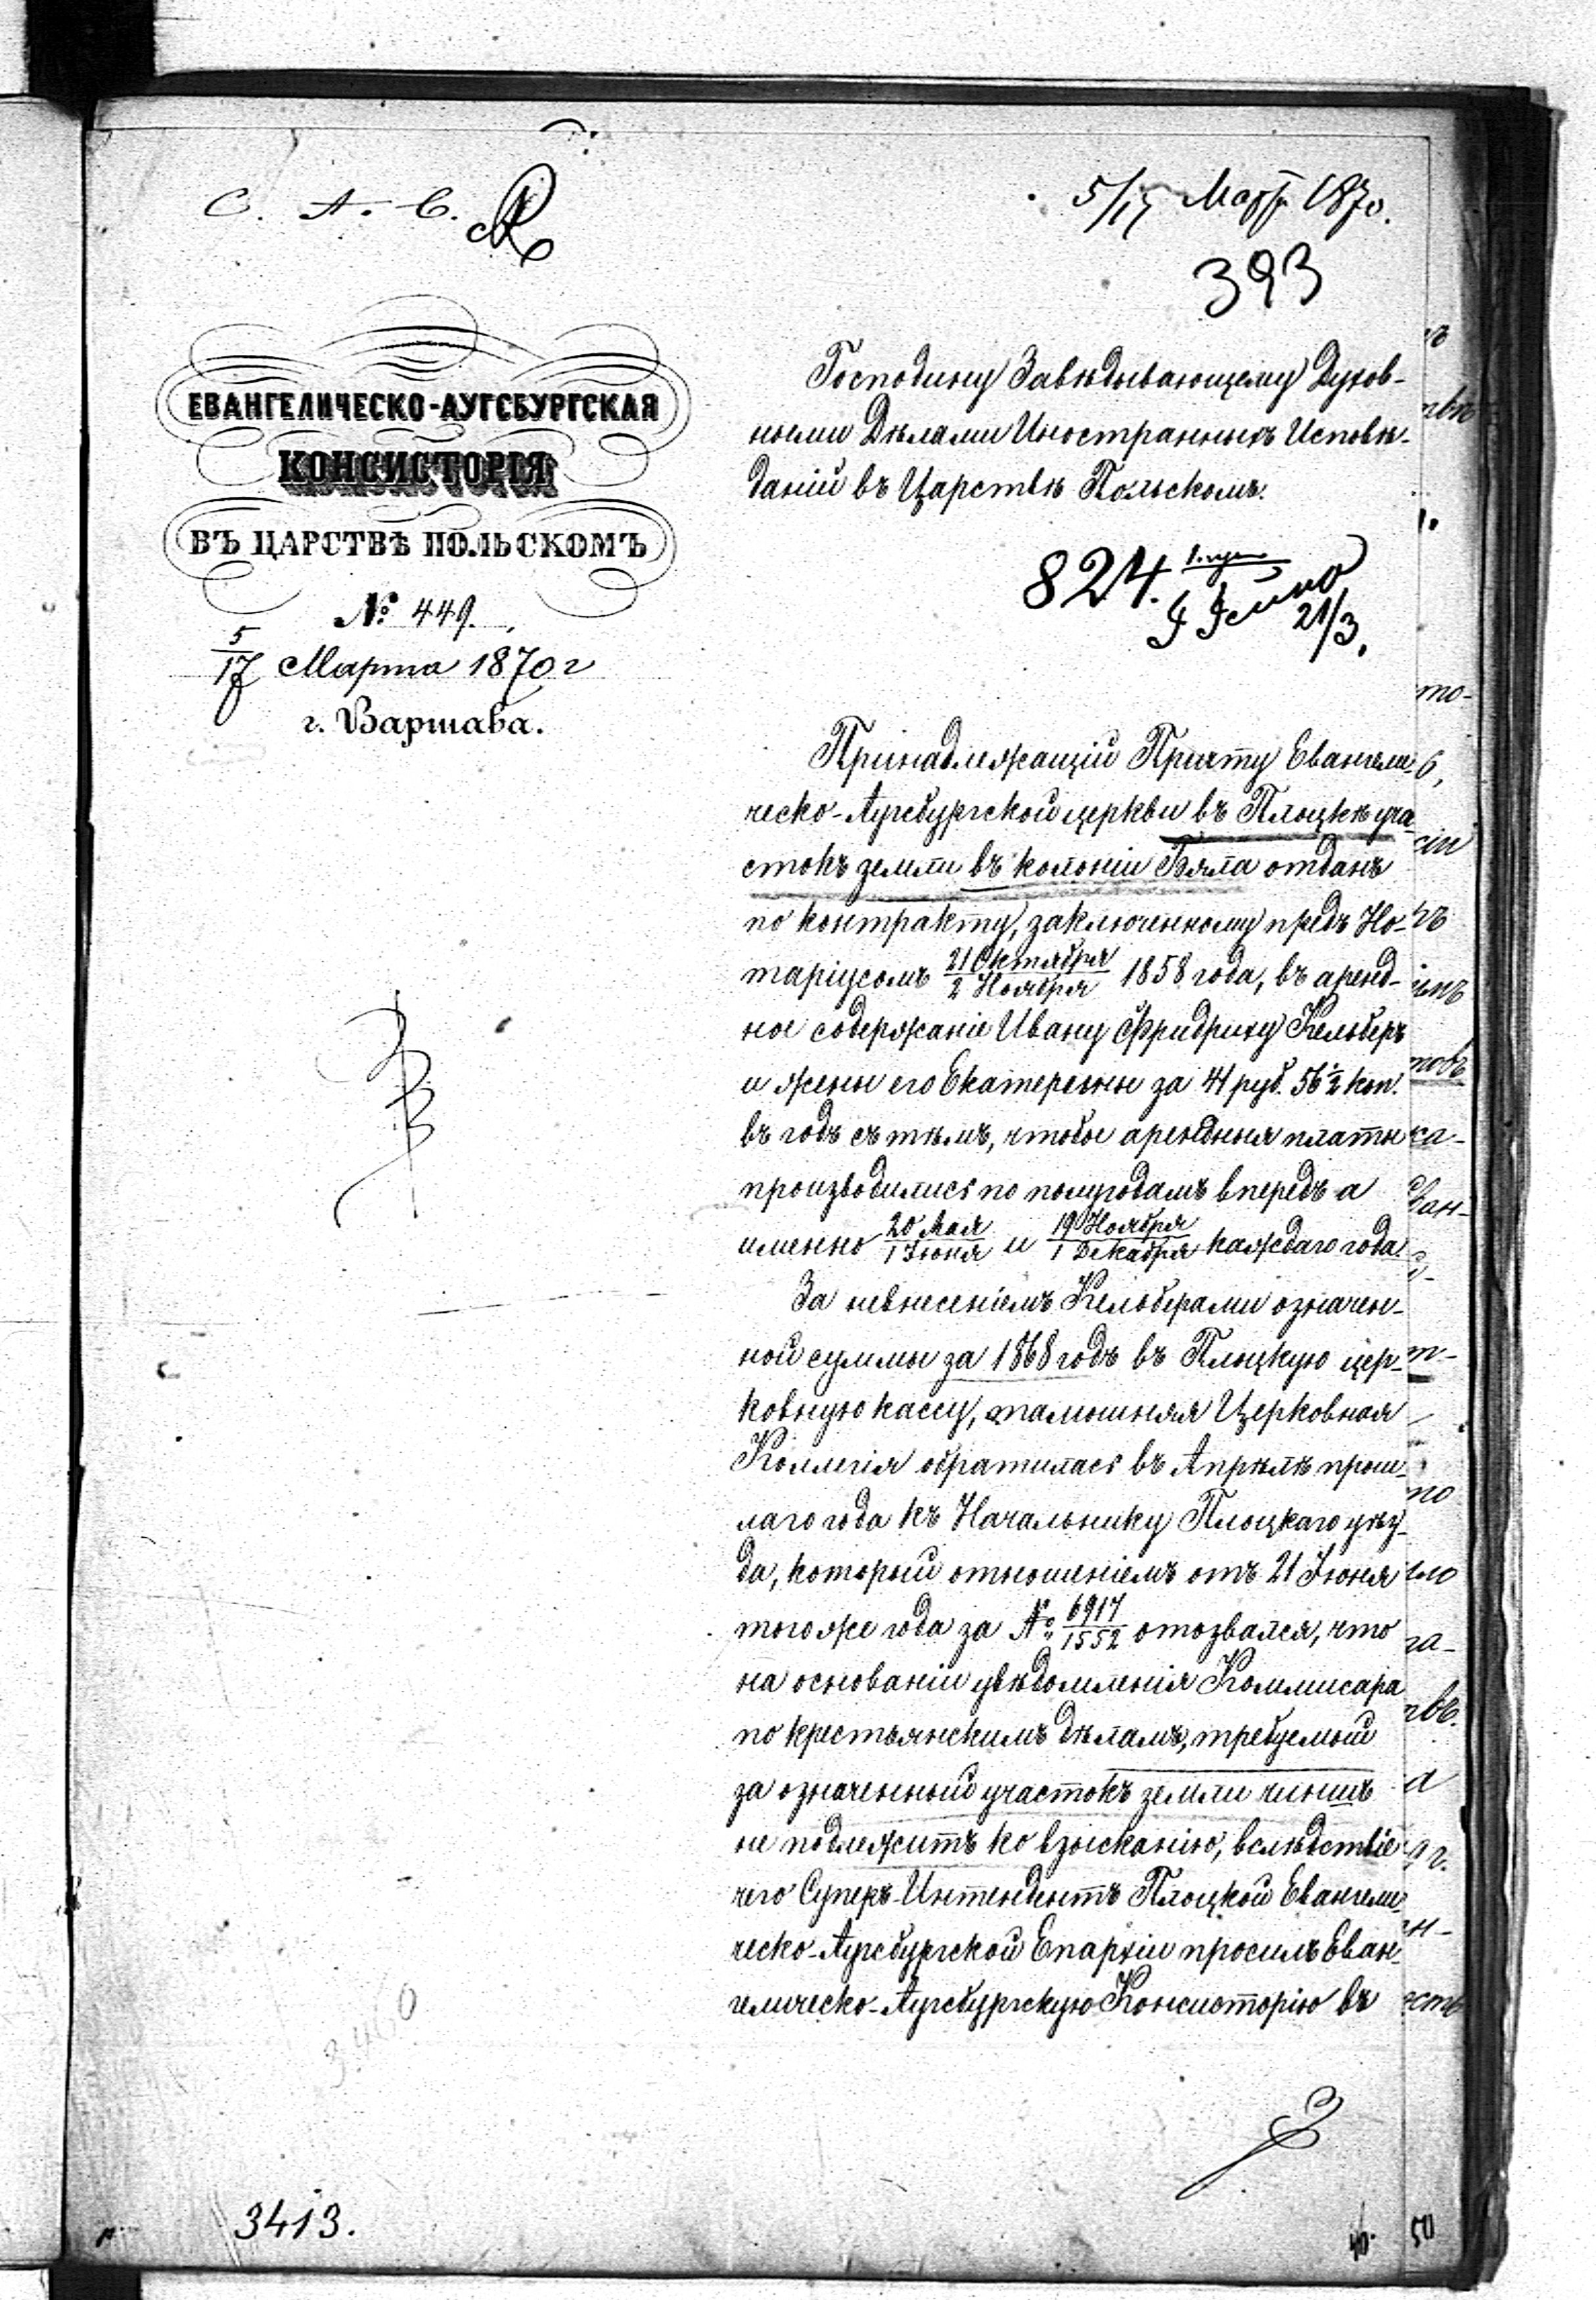 С. А. С.
5/17 Марта 1870.
393
ЕВАНГЕЛИЧЕСКО-АУГСБУРГСКАЯ
КОНСИСТОРІЯ
ВЪ ЦАРСТВѢ ПОЛЬСКОМЪ
№ 449.
5/17 Марта 1870 г
г. Варшава.
Господину Завѣдывающему Духов-
ными Дѣлами Иностранныхъ Исповѣ-
даній въ Царствѣ Польскомъ.
824.
21/3.
Принадлежащій Причту Евангели-
ческо-Аугсбургской церкви въ Плоцкѣ уча-
стокъ земли въ колоніи Бяла отданъ
по контракту, заключенному предъ Но-
таріусомъ 21 Октября/2 Ноября 1858 года, въ аренд-
ное содержаніе Ивану Фридриху Кельберъ
и жены его Екатерины за 41 руб. 56 1/2 коп.
въ годъ съ тѣмъ, чтобы арендныя платы
производились по полугодамъ впередъ а
именно 20 Мая/1 Іюня и 19 Ноября/1 Декабря каждаго года.
За невнесеніемъ Кельберами означен-
ной суммы за 1868 годъ въ Плоцкую цер-
ковную кассу, тамошняя Церковная
Коллегія обратилась въ Апрѣлѣ прош-
лаго года къ Начальнику Плоцкаго уѣз-
да, который отношеніемъ отъ 21 Іюня
того же года за № 6917/1552 отозвался, что
на основаніи увѣдомленія Коммисара
по крестьянскимъ дѣламъ, требуемый
за означенный участокъ земли чиншъ
не подлежитъ ко взысканію, вслѣдствіе
чего Суперъ-Интендентъ Плоцкой Евангели-
ческо-Аугсбургской Епархіи просилъ Еван-
гелическо-Аугсбургскую Консисторію въ
3413.
50